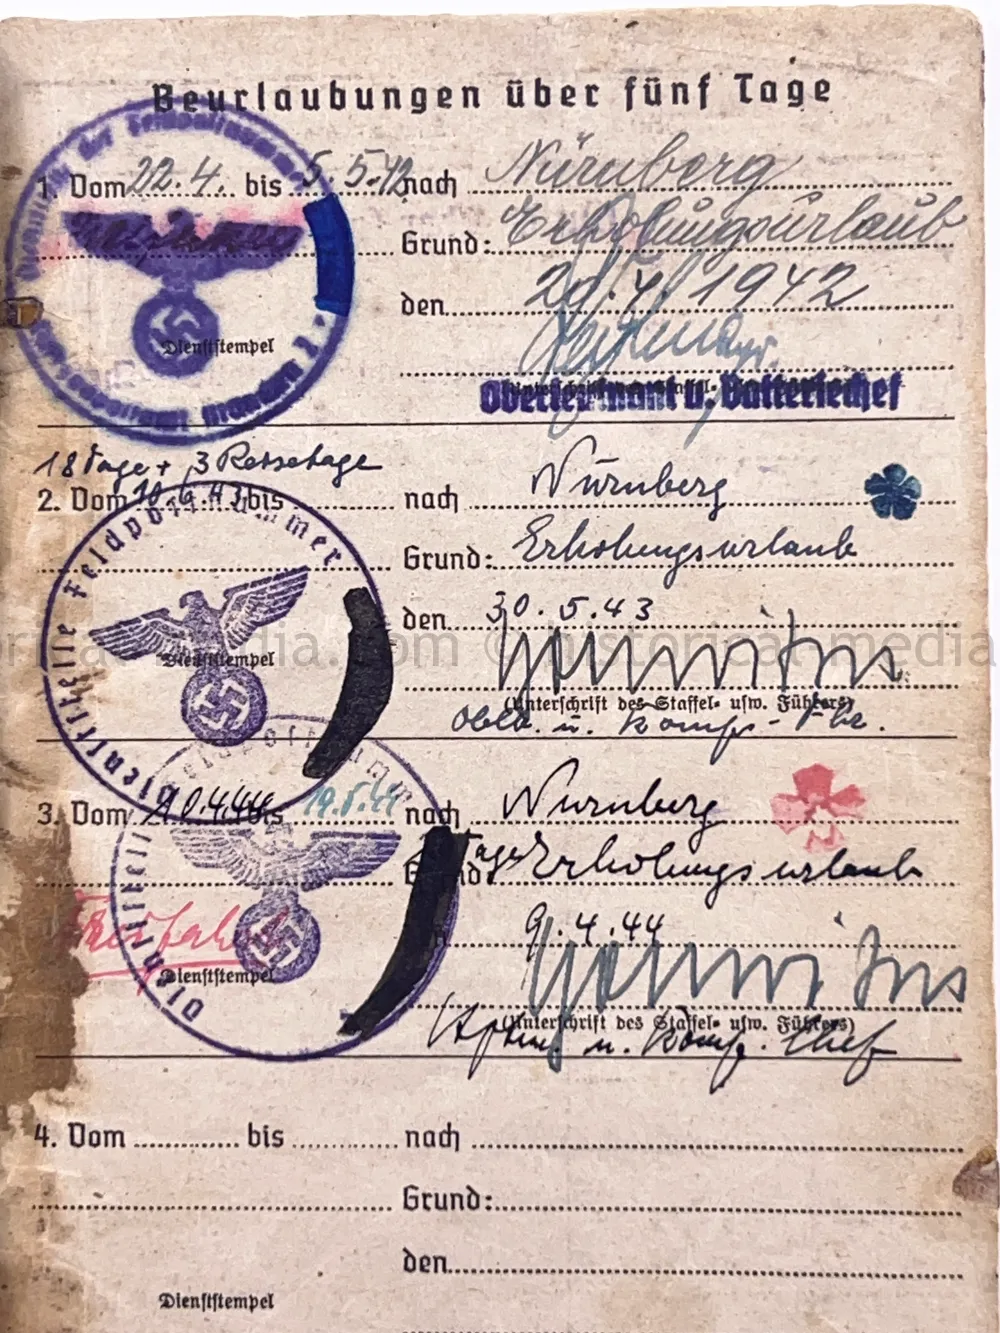 Beurlaubungen über fünf Tage
1. Vom 22.4. bis 5.5.42 nach Nürnberg
Grund: Erholungsurlaub
den 20.4.1942
Dienststempel
Oberleutnant u. Batteriechef
18 Tage + 3 Reisetage
2. Vom 10.6.43 bis nach Nürnberg
Dienststelle Feldpostnummer
Grund: Erholungsurlaub
den 30.5.43
Dienststempel
(Unterschrift des Staffel- usw. Führers)
Oblt. u. Komp.-Fhr.
3. Vom 10.4.44 bis 19.5.44 nach Nürnberg
Dienststelle Feldpostnummer
Grund: Tage Erholungsurlaub
9.4.44
Dienststempel
(Unterschrift des Staffel- usw. Führers)
Hptm. u. Komp. Chef
4. Vom bis nach
Grund:
den
Dienststempel
historical-media.com © historical-media